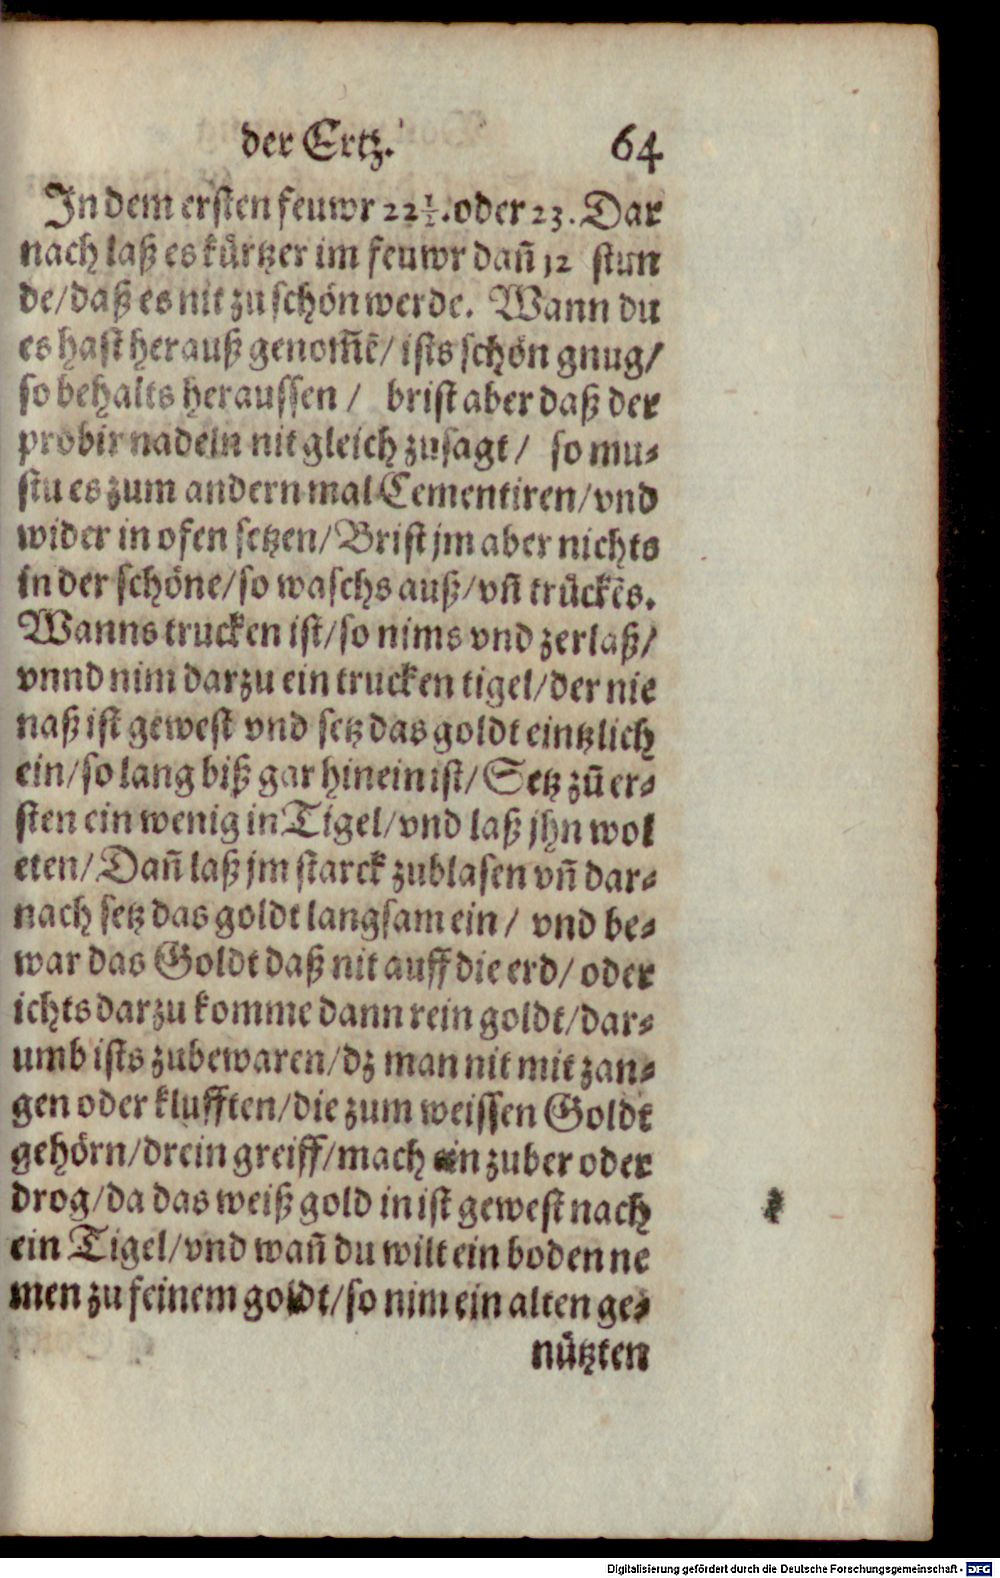 der Ertz. 64
In dem ersten feuwr 22½. oder 23. Dar
nach laß es kürtzer im feuwr dañ 12 stun
de/ daß es nit zu schön werde. Wann du
es hast herauß genom̃ẽ/ ists schön gnug/
so behalts heraussen / brist aber daß der
probir nadeln nit gleich zusagt / so mu-
stu es zum andern mal Cementiren/ vnd
wider in ofen setzen/ Brist jm aber nichts
in der schöne/ so waschs auß/ vñ trückẽs.
Wanns trucken ist/ so nims vnd zerlaß/
vnnd nim darzu ein trucken tigel/ der nie
naß ist gewest vnd setz das goldt eintzlich
ein/ so lang biß gar hinein ist/ Setz zũ er-
sten ein wenig in Tigel/ vnd laß jhn wol
eten/ Dañ laß jm starck zublasen vñ dar-
nach setz das goldt langsam ein / vnd be-
war das Goldt daß nit auff die erd/ oder
ichts darzu komme dann rein goldt/ dar-
umb ists zubewaren/ dz man nit mit zan-
gen oder klufften/ die zum weissen Goldt
gehörn/ drein greiff/ mach ein zuber oder
drog/ da das weiß gold in ist gewest nach
ein Tigel/ vnd wañ du wilt ein boden ne
men zu feinem goldt/ so nim ein alten ge-
nützten
Digitalisierung gefördert durch die Deutsche Forschungsgemeinschaft - DFG